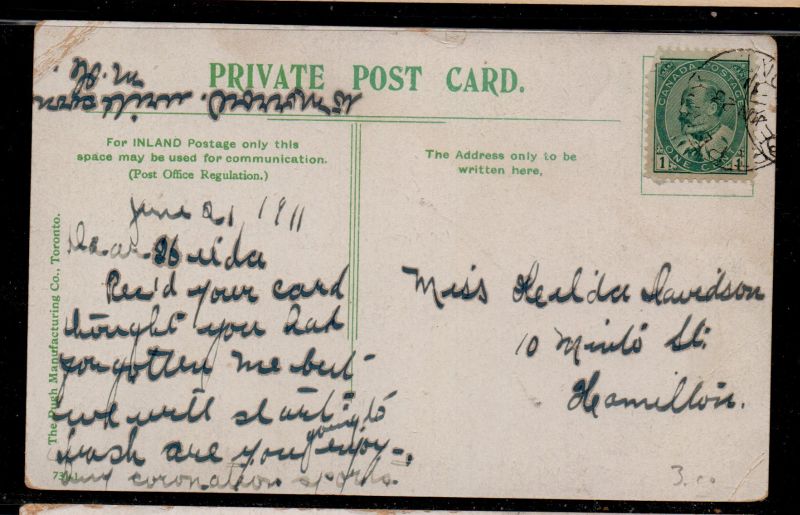 PRIVATE POST CARD.
For INLAND Postage only this
space may be used for communication.
(Post Office Regulation.)
The Address only to be
written here,
CANADA POSTAGE
1 ONE CENT 1
The Pugh Manufacturing Co., Toronto.
June 21 1911
Dear Hilda
Rec'd your card
thought you had
forgotten me but
we will start
wash are you going to enjoy
any coronation sports.
tomorrow. write again
Miss Heilda Davidson
10 Minto St.
Hamilton.
3.00